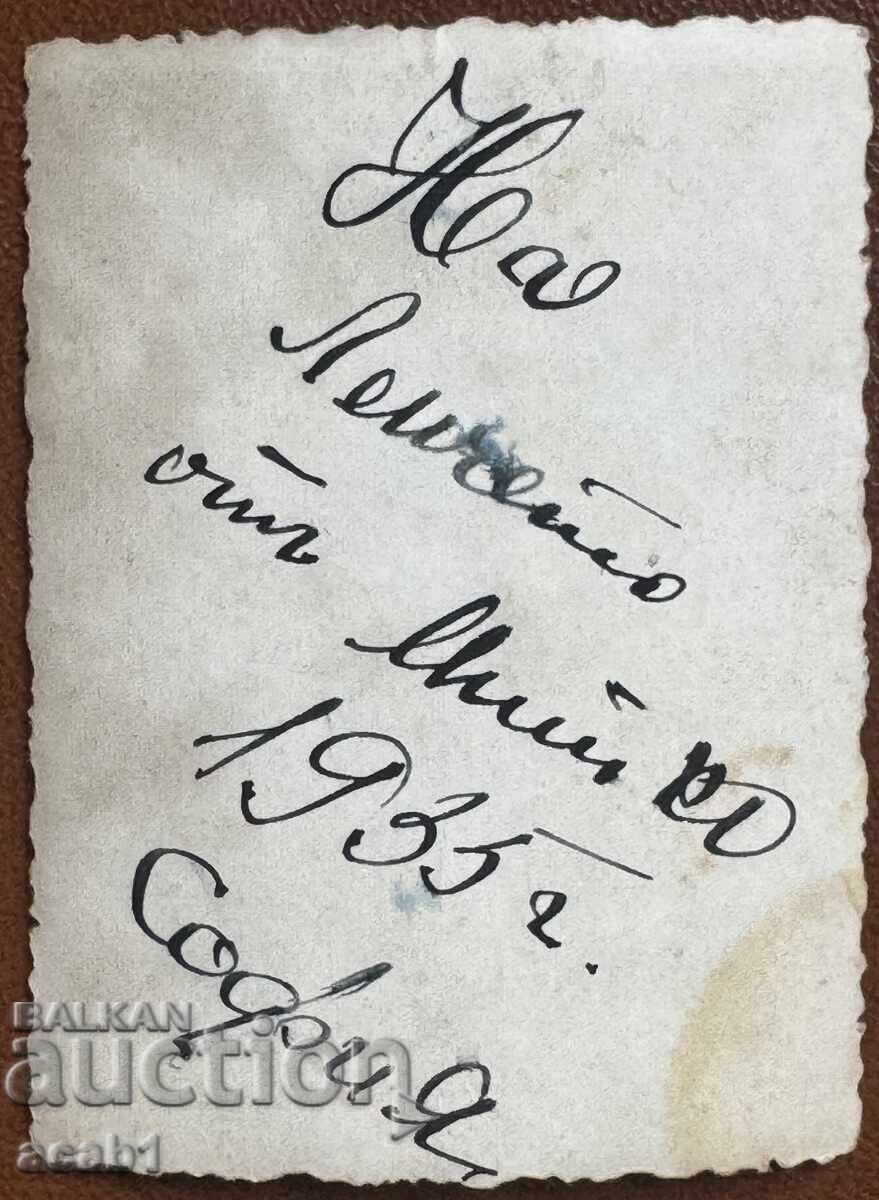 На
Ленчето
отъ Митко
1935 г.
София
BALKAN
auction
acab1